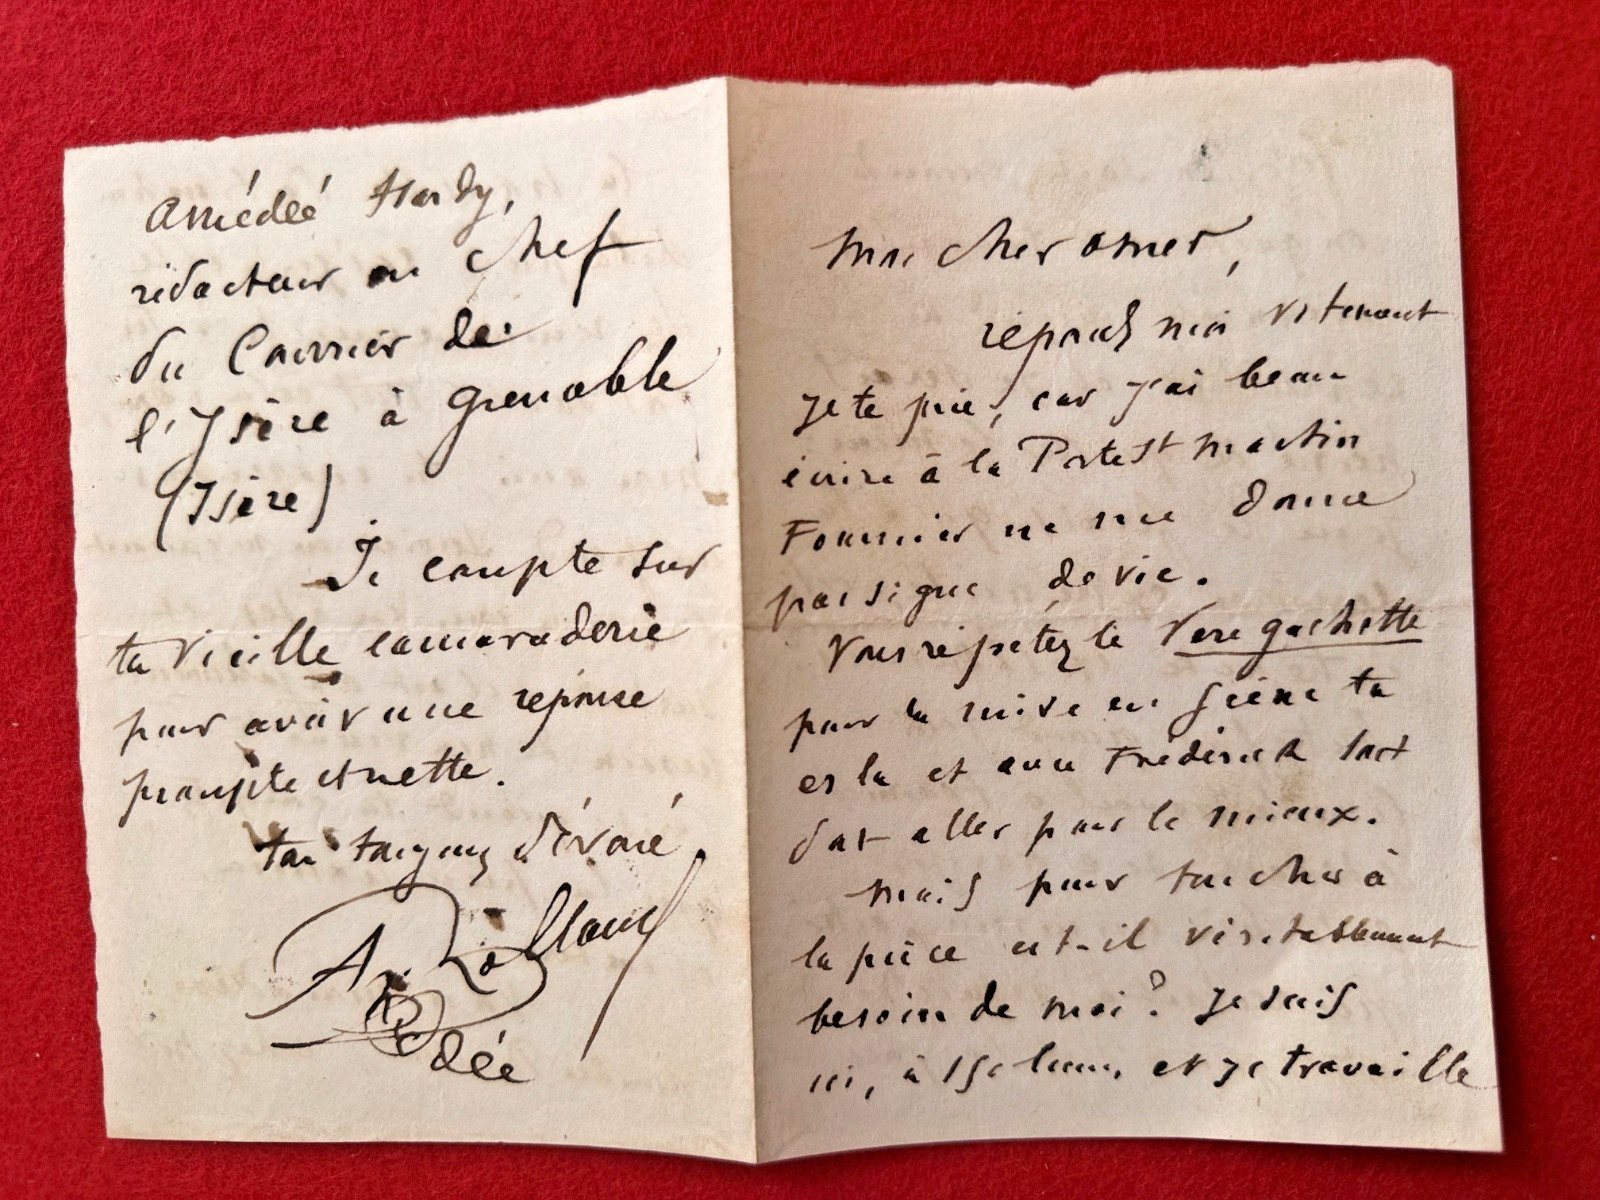 mon cher omer,
réponds moi vitement
je te prie, car j'ai beau
écrire à la Porte St martin
Fournier ne me donne
pas signe de vie.
Vous répétez le Père gachette
pour la mise en scène tu
es là et avec Frédérick tout
doit aller pour le mieux.
mais pour toucher à
la pièce est-il véritablement
besoin de moi? je suis
ici, à et je travaille
amédée Hardy,
rédacteur en chef
du Courrier de
l'Isère à grenoble
(Isère)
Je compte sur
ta vieille camaraderie
pour avoir une réponse
prompte et nette.
ton toujours dévoué
A. Rolland